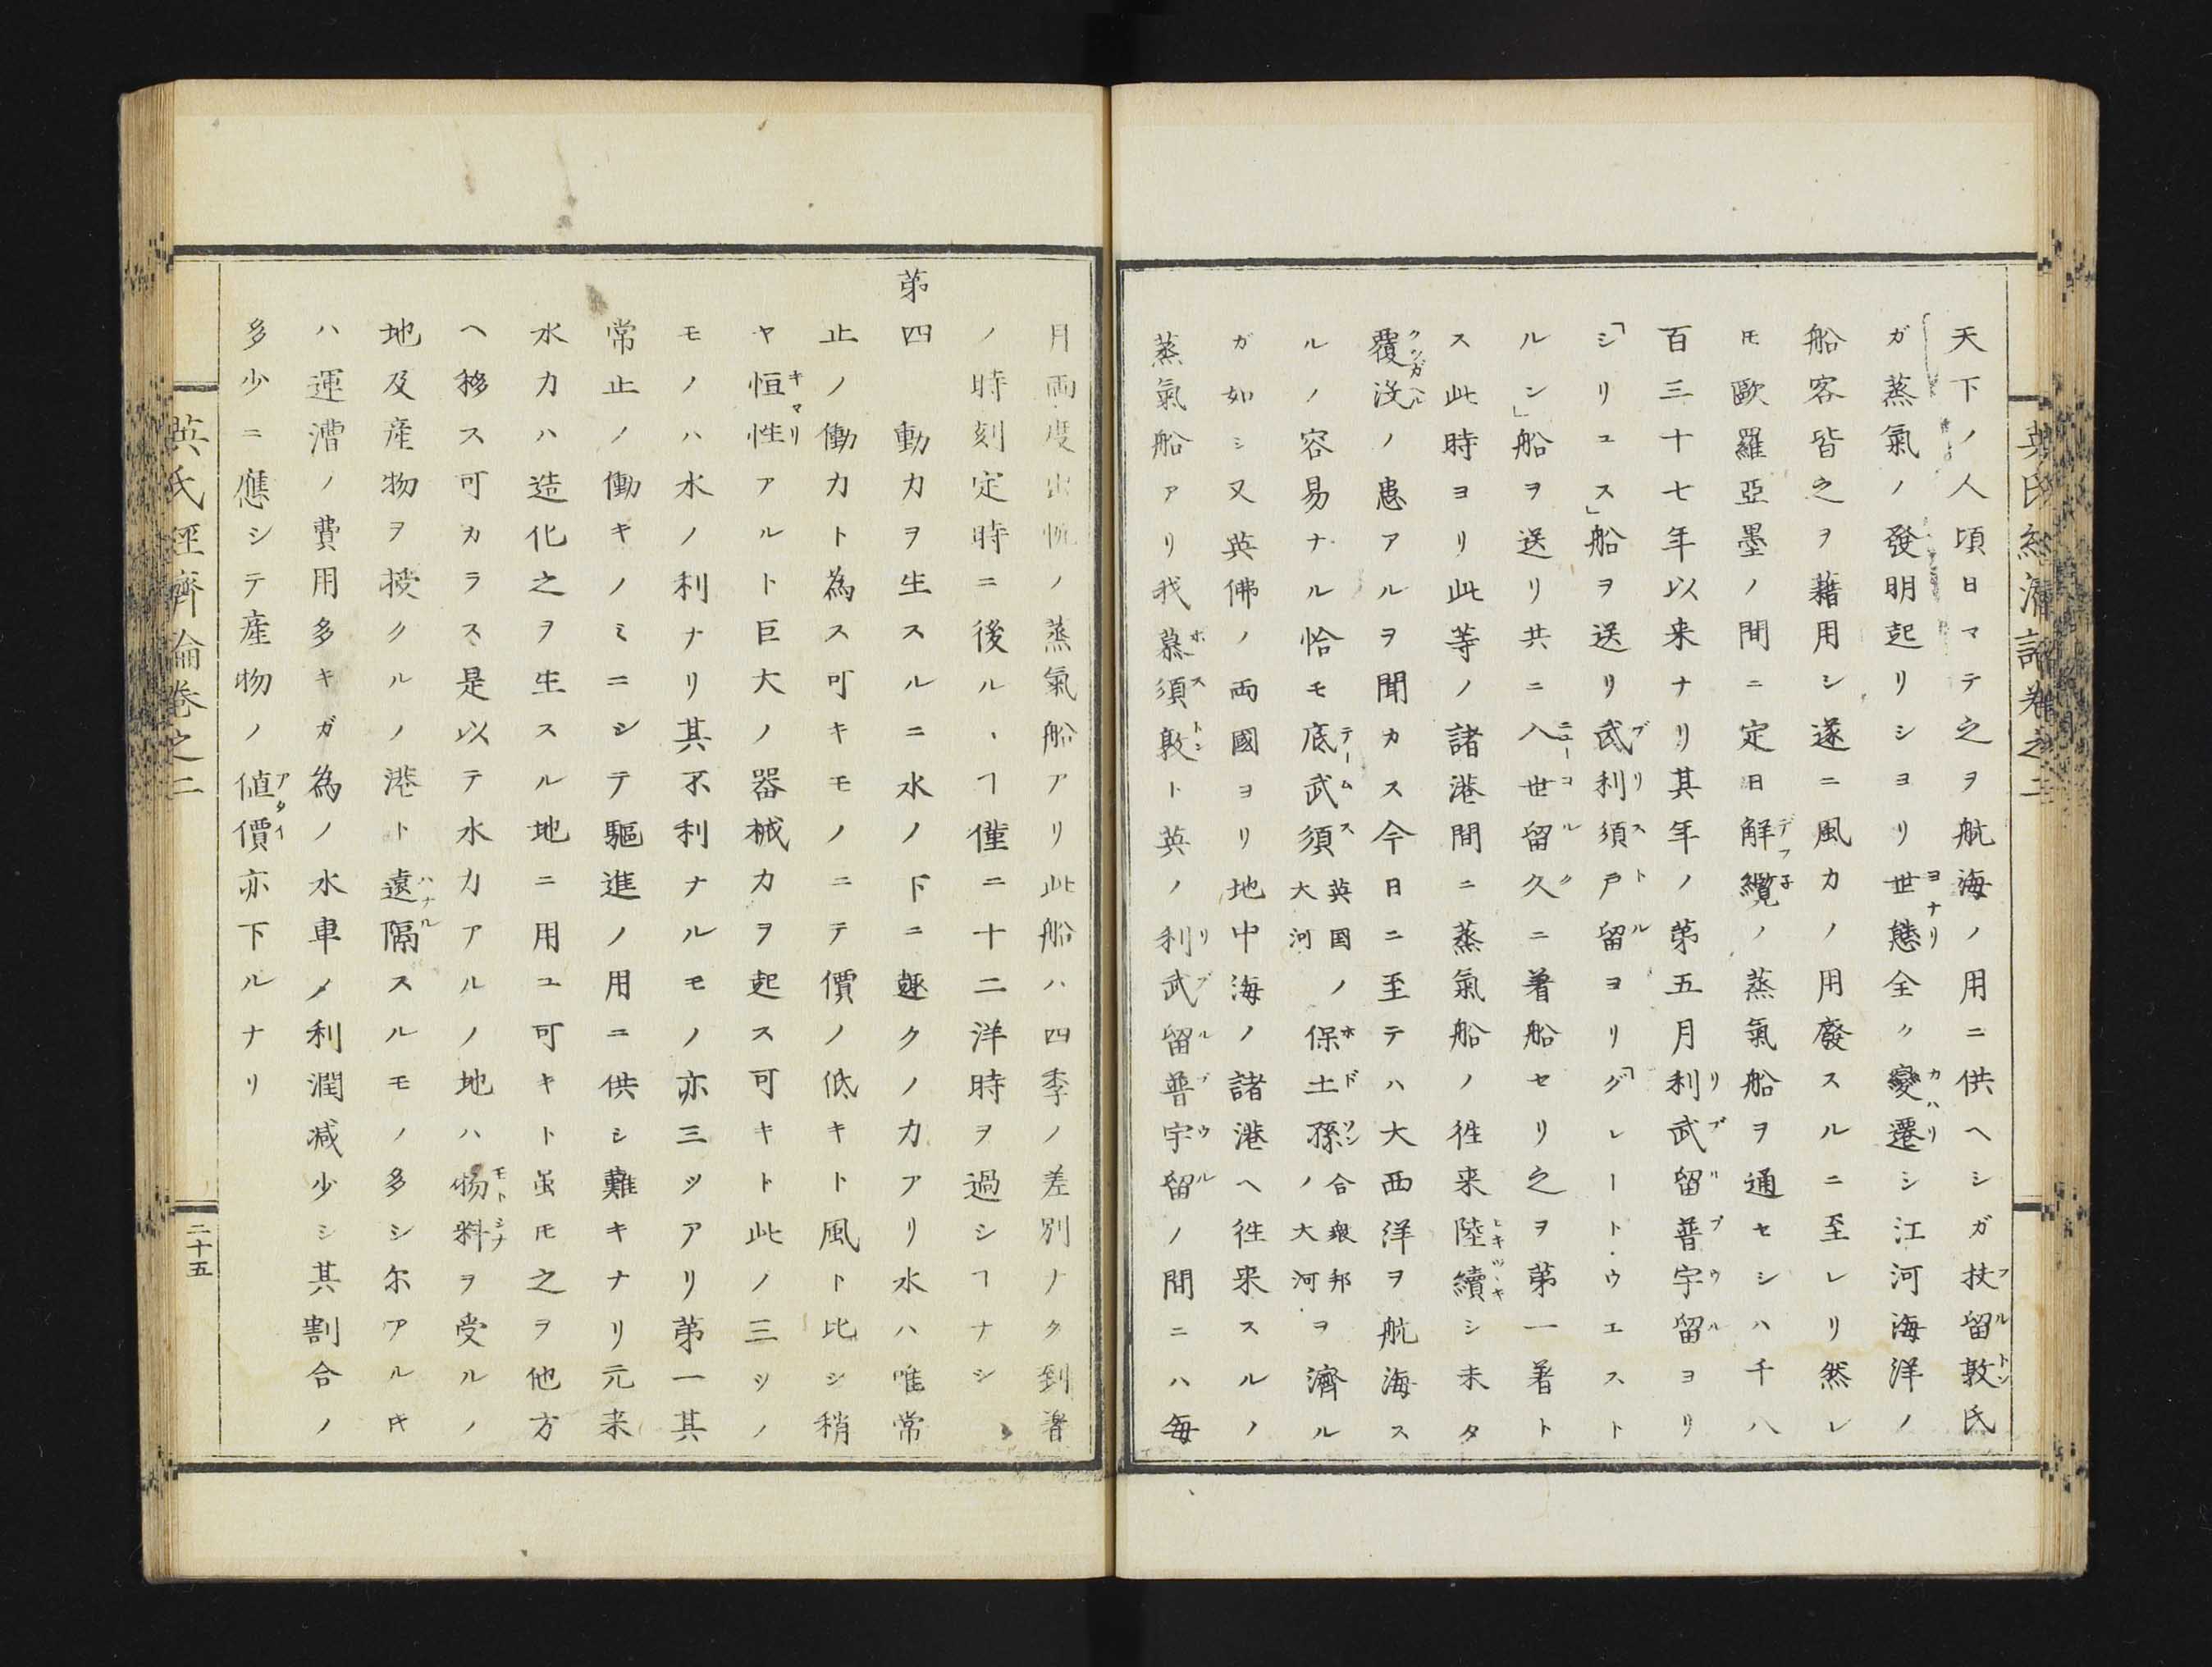 天下ノ人頃日マテ之ヲ航海ノ用ニ供ヘシガ扙留敦氏
ガ蒸氣ノ發明起リシヨリ世態全ク變遷シ江河海洋ノ
船客皆之ヲ藉用シ遂ニ風力ノ用廢スルニ至レリ然レ
𪜈歐羅亞墨ノ間ニ定日解纜ノ蒸氣船ヲ通セシハ千八
百三十七年以来ナリ其年ノ第五月利武留普宇留ヨリ
「シリユス」船ヲ送リ武利須戸留ヨリ「グレート・ウエスト
ルン」船ヲ送リ共ニ入世留久ニ着船セリ之ヲ第一着ト
ス此時ヨリ此等ノ諸港間ニ蒸氣船ノ徃来陸續シ未タ
覆沒ノ患アルヲ聞カス今日ニ至テハ大西洋ヲ航海ス
ルノ容易ナル恰モ底武須英国大河ノ保土孫合衆邦ノ大河ヲ濟ル
ガ如シ又英佛ノ両國ヨリ地中海ノ諸港ヘ徃来スルノ
蒸氣船アリ我慕須敦ト英ノ利武留普宇留ノ間ニハ毎
月両度出帆ノ蒸氣船アリ此船ハ四季ノ差別ナク到着
ノ時刻定時ニ後ルヽヿ僅ニ十二洋時ヲ過シヿナシ
第四 動力ヲ生スルニ水ノ下ニ趣クノ力アリ水ハ唯常
止ノ働力ト為ス可キモノニテ價ノ低キト風ト比シ稍
ヤ恒性アルト巨大ノ器械力ヲ起ス可キト此ノ三ツノ
モノハ水ノ利ナリ其不利ナルモノ亦三ツアリ第一其
常止ノ働キノミニシテ驅進ノ用ニ供シ難キナリ元来
水力ハ造化之ヲ生スル地ニ用ユ可キト虽𪜈之ヲ他方
ヘ移ス可カラス是以テ水力アルノ地ハ物料ヲ受ルノ
地及産物ヲ授クルノ港ト遠隔スルモノ多シ尓アルキ
ハ運漕ノ費用多キガ為ノ水車ノ利潤減少シ其割合ノ
多少ニ應シテ産物ノ値價亦下ルナリ
英氏經齊論卷之二
二十五